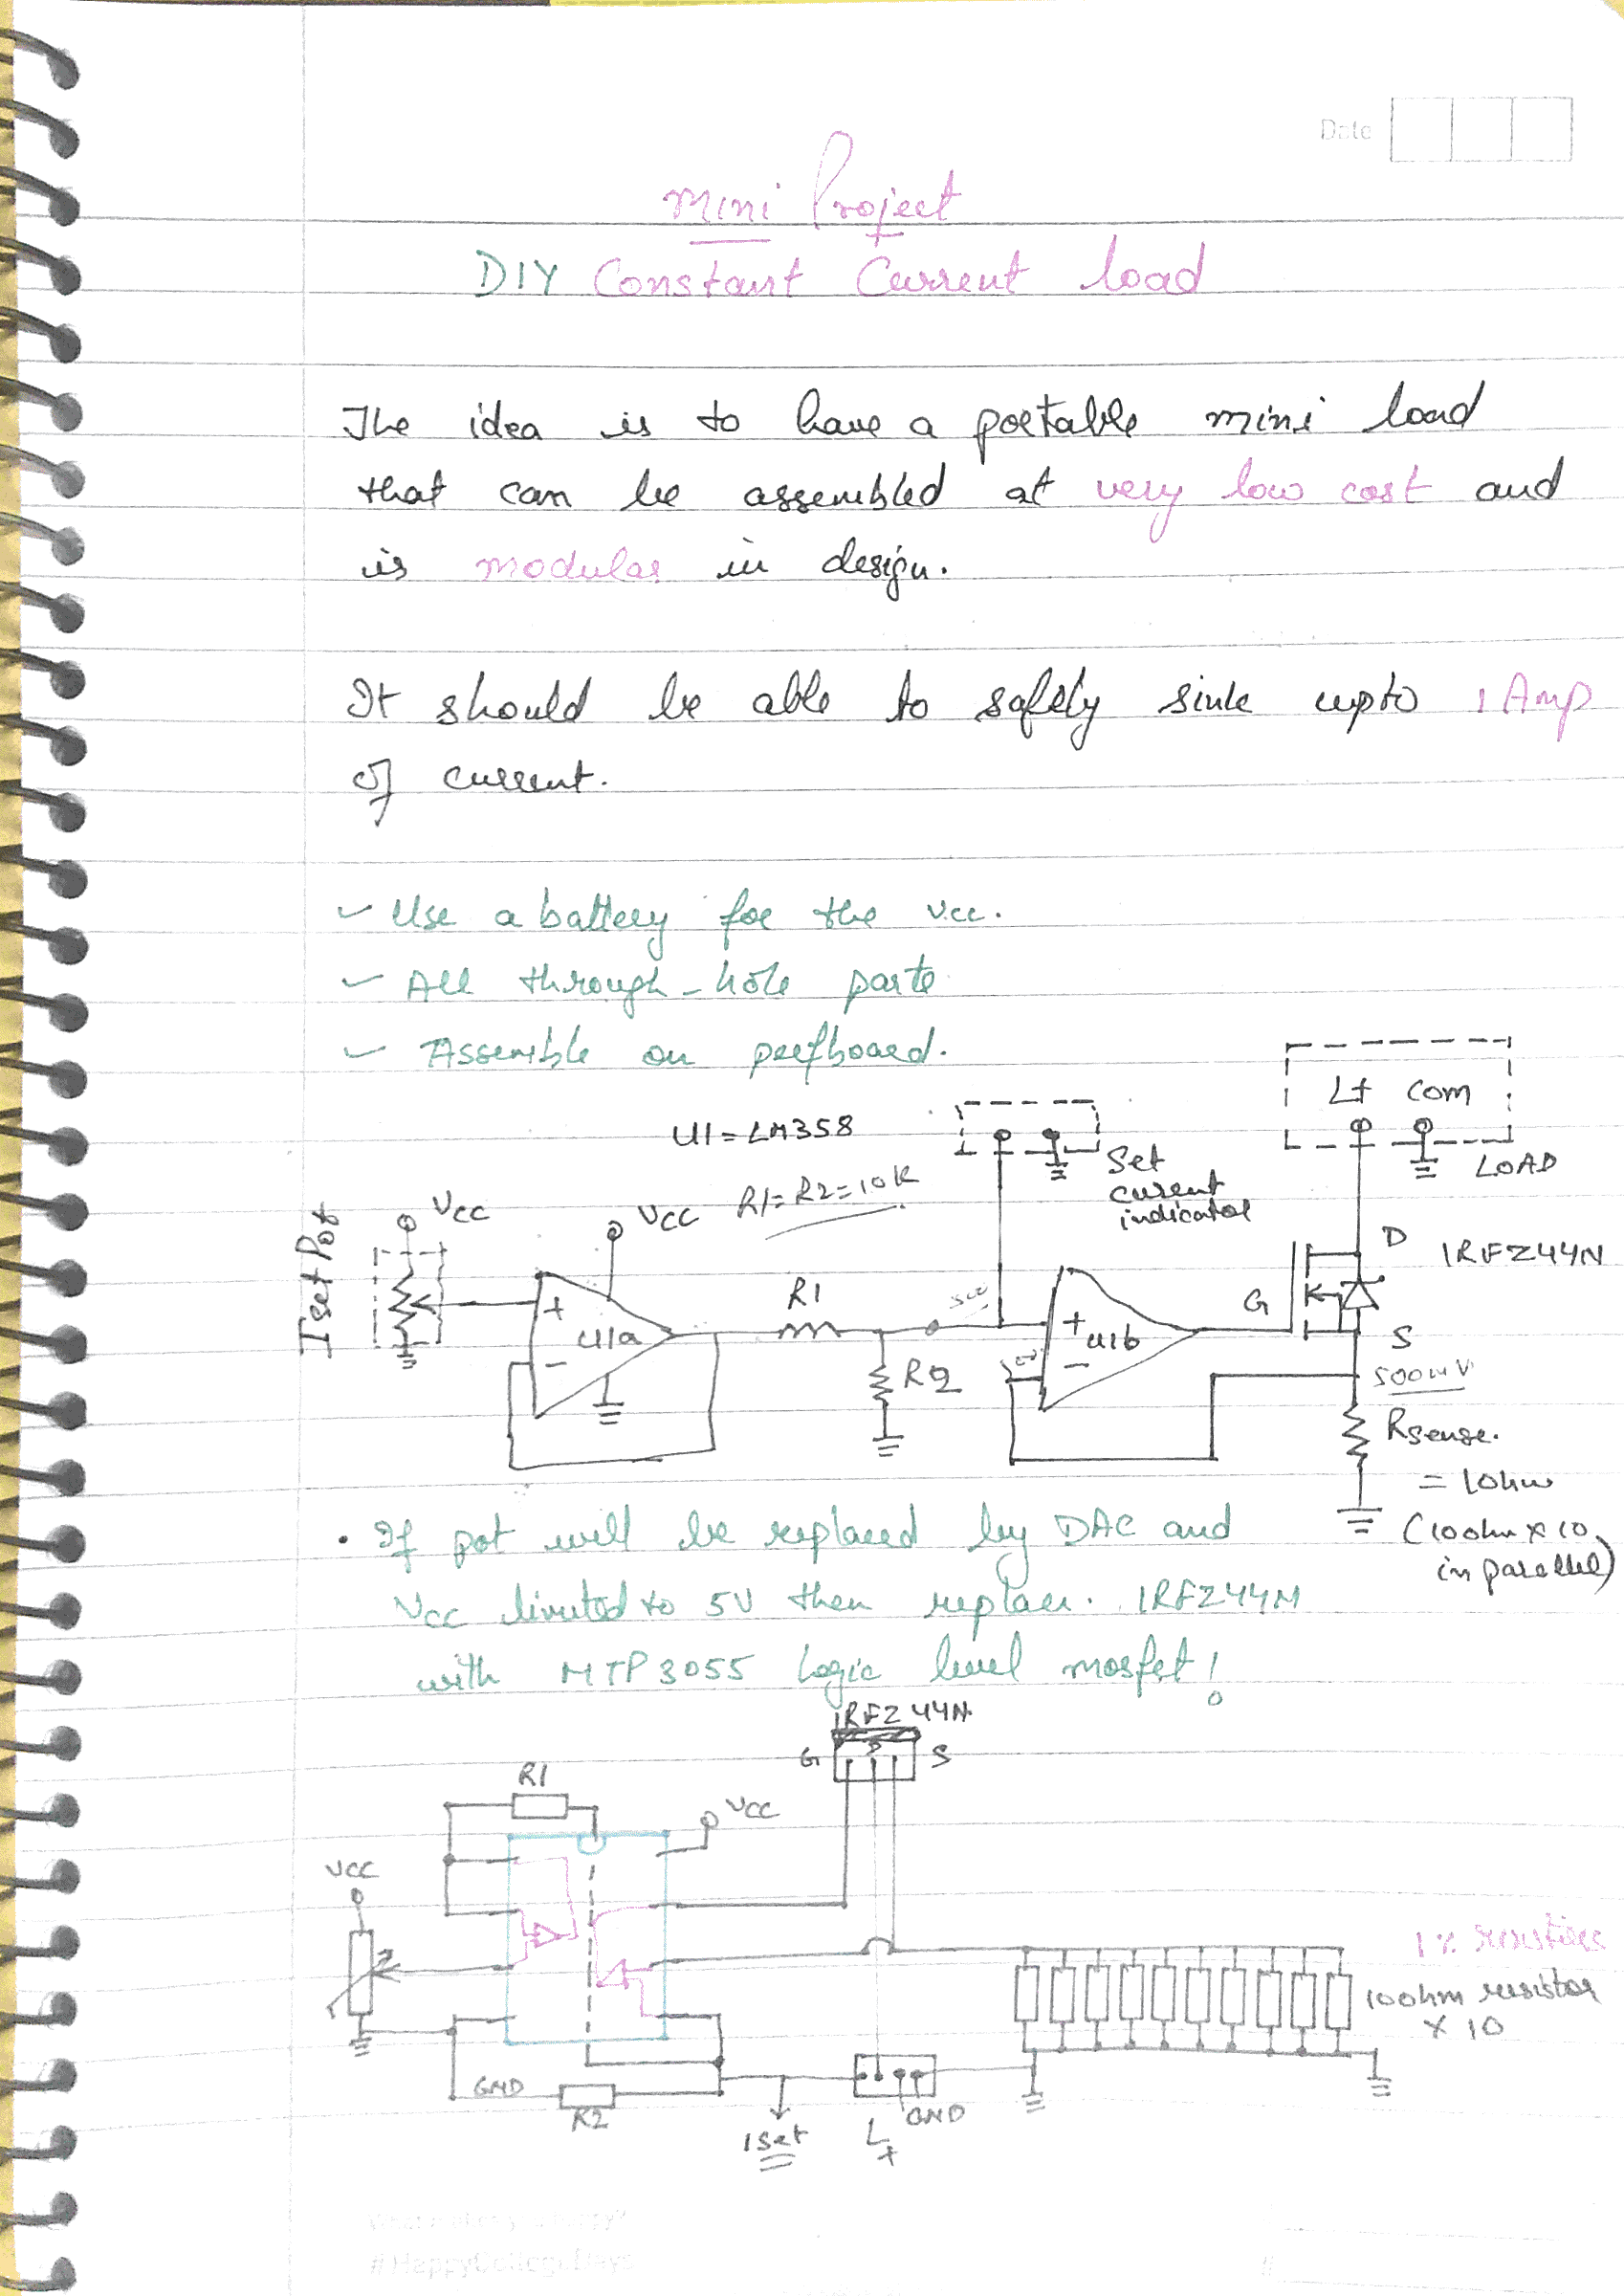 Date
Mini Project
DIY Constant Current load
The idea is to have a portable mini load
that can be assembled at very low cost and
is modular in design.
It should be able to safely sink upto 1 Amp
of current.
- Use a battery for the vcc.
- All through-hole parts
- Assemble on perfboard.
L+ com
LOAD
U1 = LM358
Set
curent
indicator
R1=R2=10K
Iset Pot
Vcc
Vcc
D
IRFZ44N
G
S
R1
+
-
U1a
+
-
U1b
R2
500mV
Rsense.
= 1ohm
(10ohm x 10
in parallel)
• If pot will be replaced by DAC and
Vcc limited to 5V then replace. IRFZ44N
with MTP3055 Logic level mosfet!
IRFZ44N
G D S
R1
VCC
VCC
1% resistors
10ohm resistor
x 10
GND
R2
Iset
L+
GND
#HappyCollegeDays